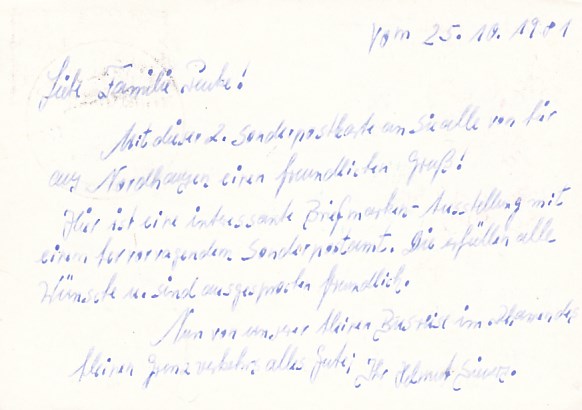 Vom 25.10.1981
Liebe Familie
Mit dieser 2. Sonderpostkarte an Sie alle von hier
aus Nordhausen einen freundlichen Gruß!
Hier ist eine interessante Briefmarken-Ausstellung mit
einem hervorragendem Sonderpostamt. Die erfüllen alle
Wünsche u. sind ausgesprochen freundlich.
Nun von unserer kleinen Busreise im
kleinen Grenzverkehr alles Gute, Ihr Helmut